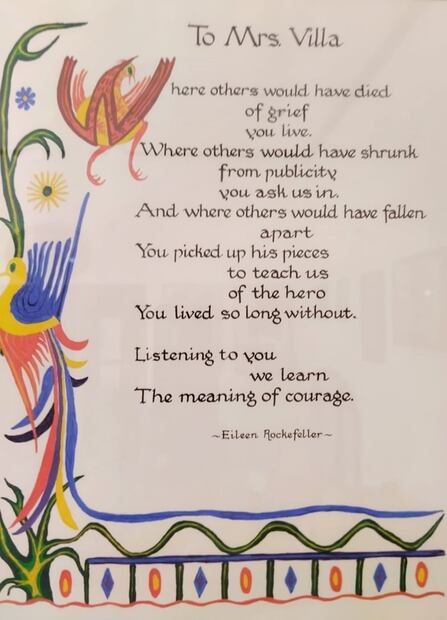 To Mrs. Villa
Where others would have died
of grief
you live.
Where others would have shrunk
from publicity
you ask us in.
And where others would have fallen
apart
You picked up his pieces
to teach us
of the hero
You lived so long without.
Listening to you
we learn
The meaning of courage.
~Eileen Rockefeller~